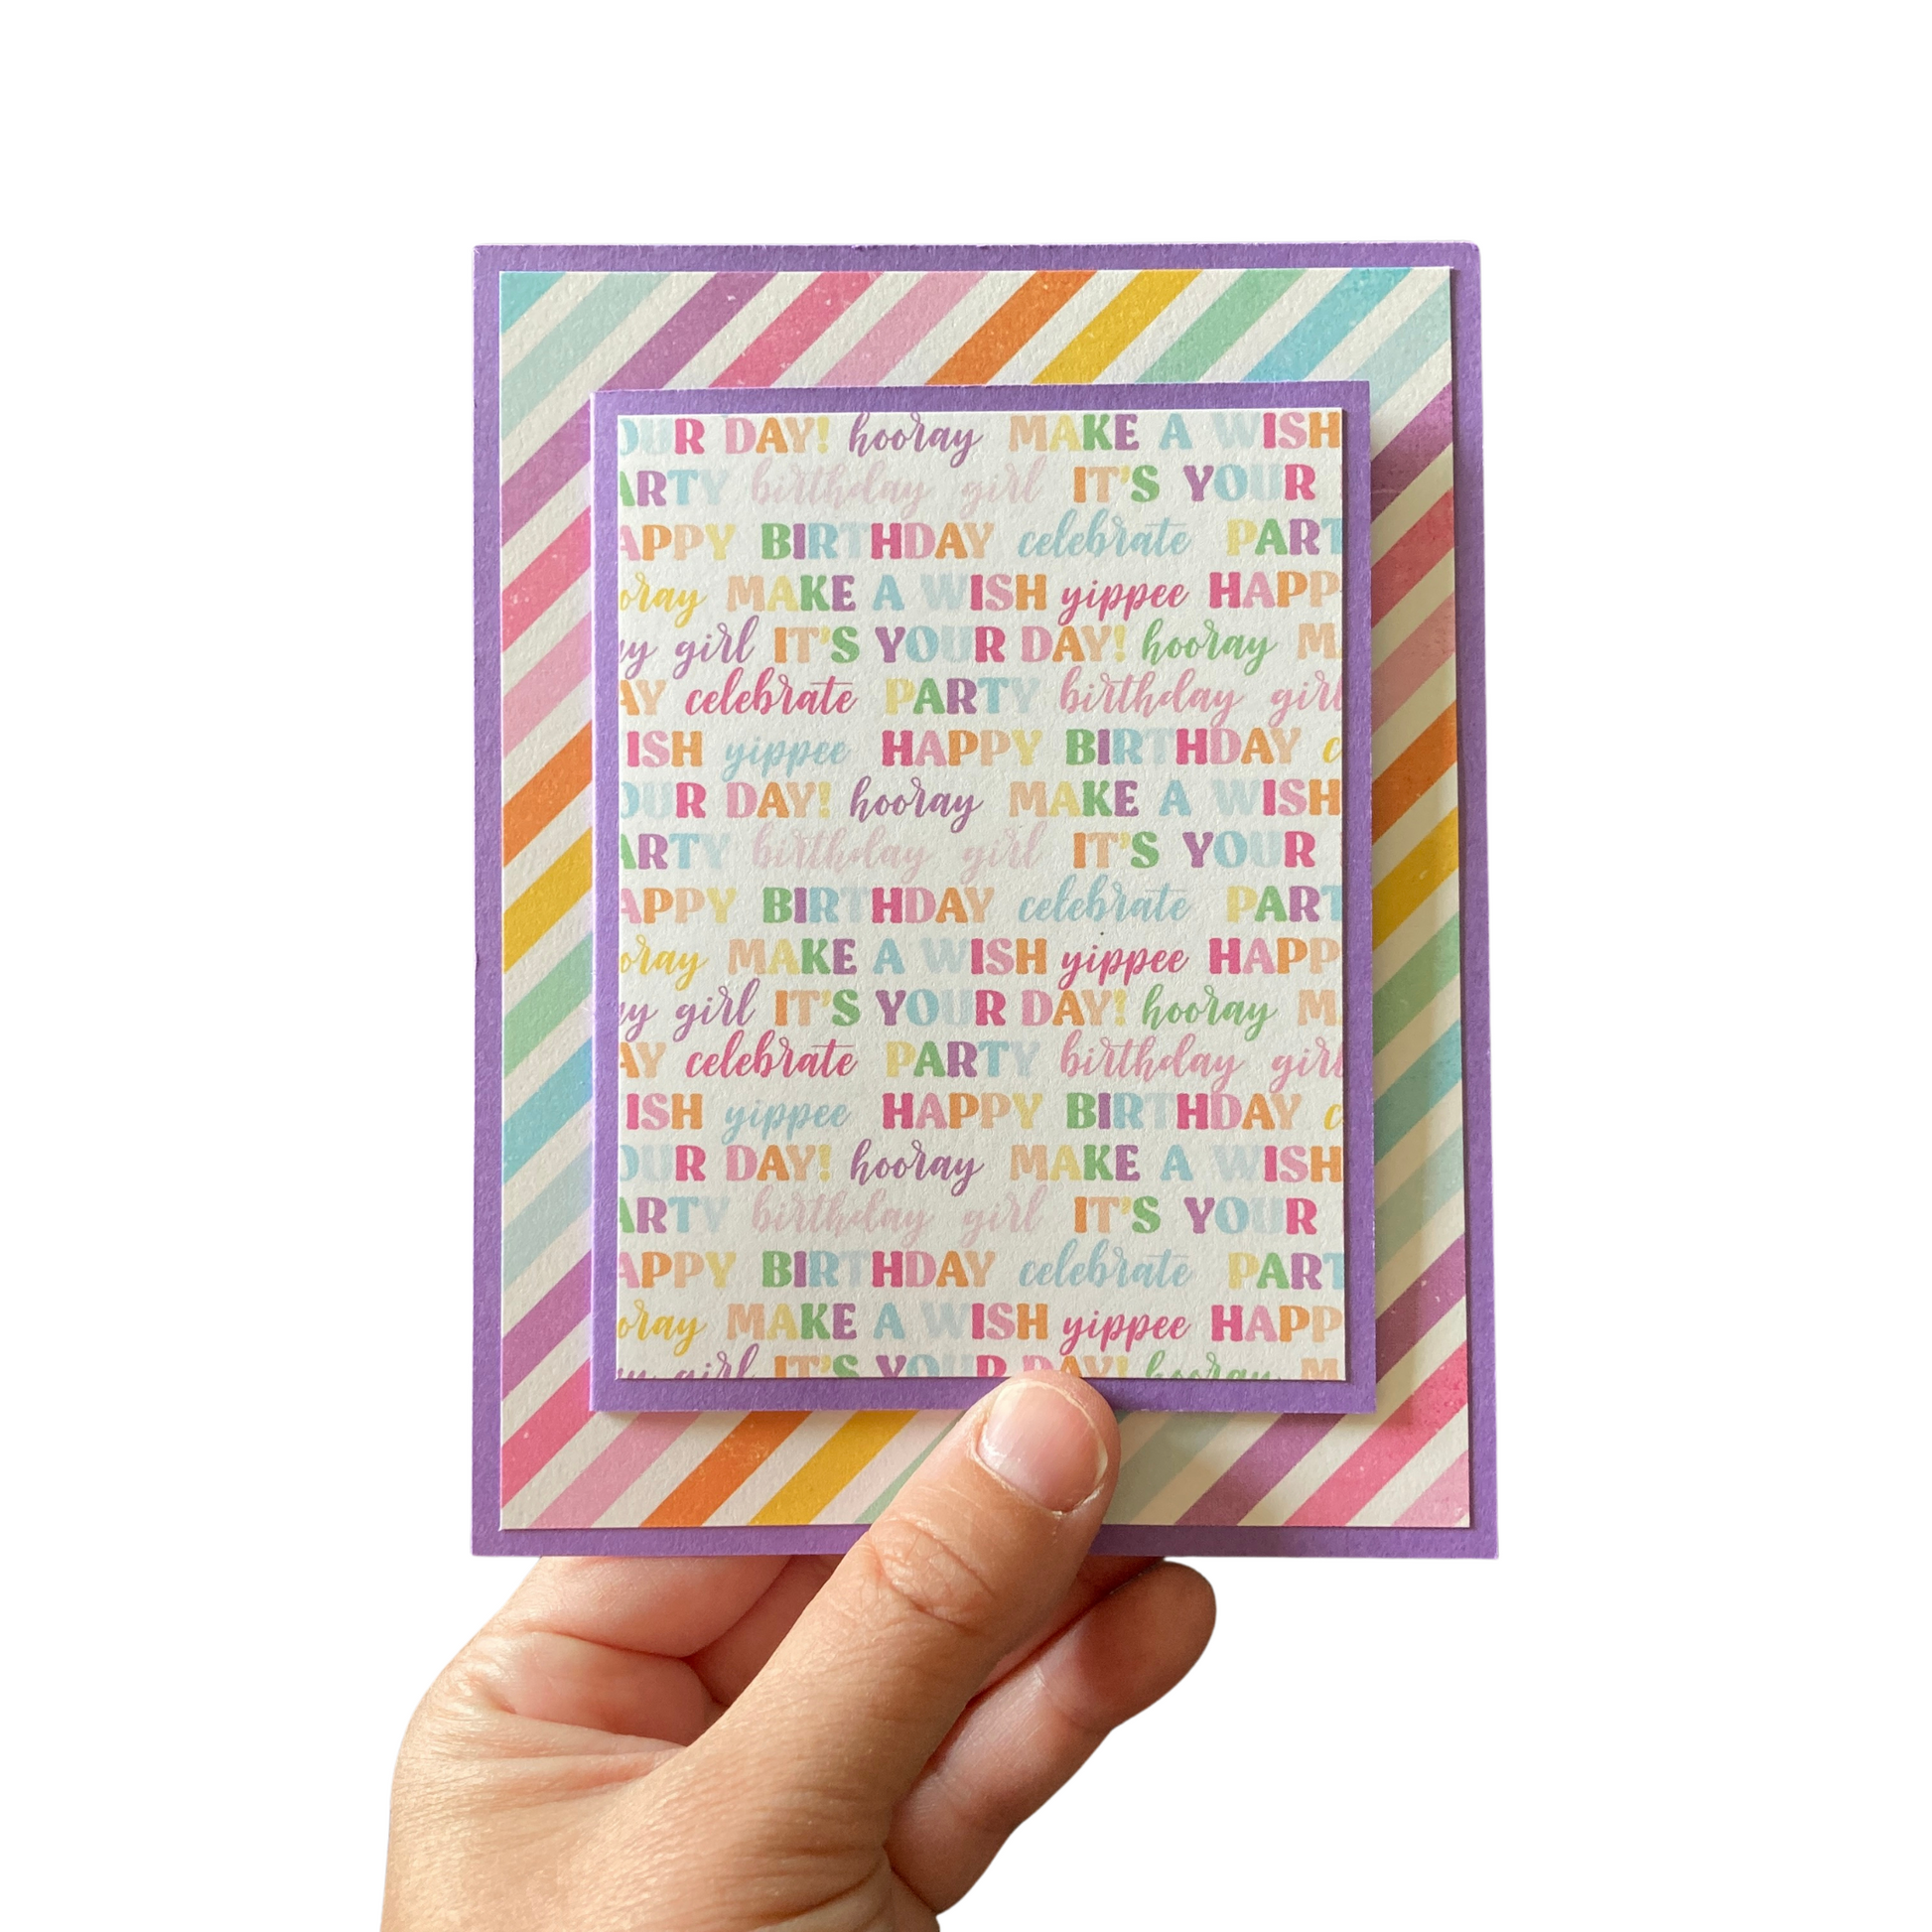 OUR DAY! hooray MAKE A WISH
ARTY birthday girl IT'S YOUR
APPY BIRTHDAY celebrate PART
oray MAKE A WISH yippee HAPP
ay girl IT'S YOUR DAY! hooray M
AY celebrate PARTY birthday girl
ISH yippee HAPPY BIRTHDAY c
OUR DAY! hooray MAKE A WISH
ARTY birthday girl IT'S YOUR
APPY BIRTHDAY celebrate PART
oray MAKE A WISH yippee HAPP
ay girl IT'S YOUR DAY! hooray M
AY celebrate PARTY birthday girl
ISH yippee HAPPY BIRTHDAY c
OUR DAY! hooray MAKE A WISH
ARTY birthday girl IT'S YOUR
APPY BIRTHDAY celebrate PART
oray MAKE A WISH yippee HAPP
ay girl IT'S YOUR DAY! hooray M